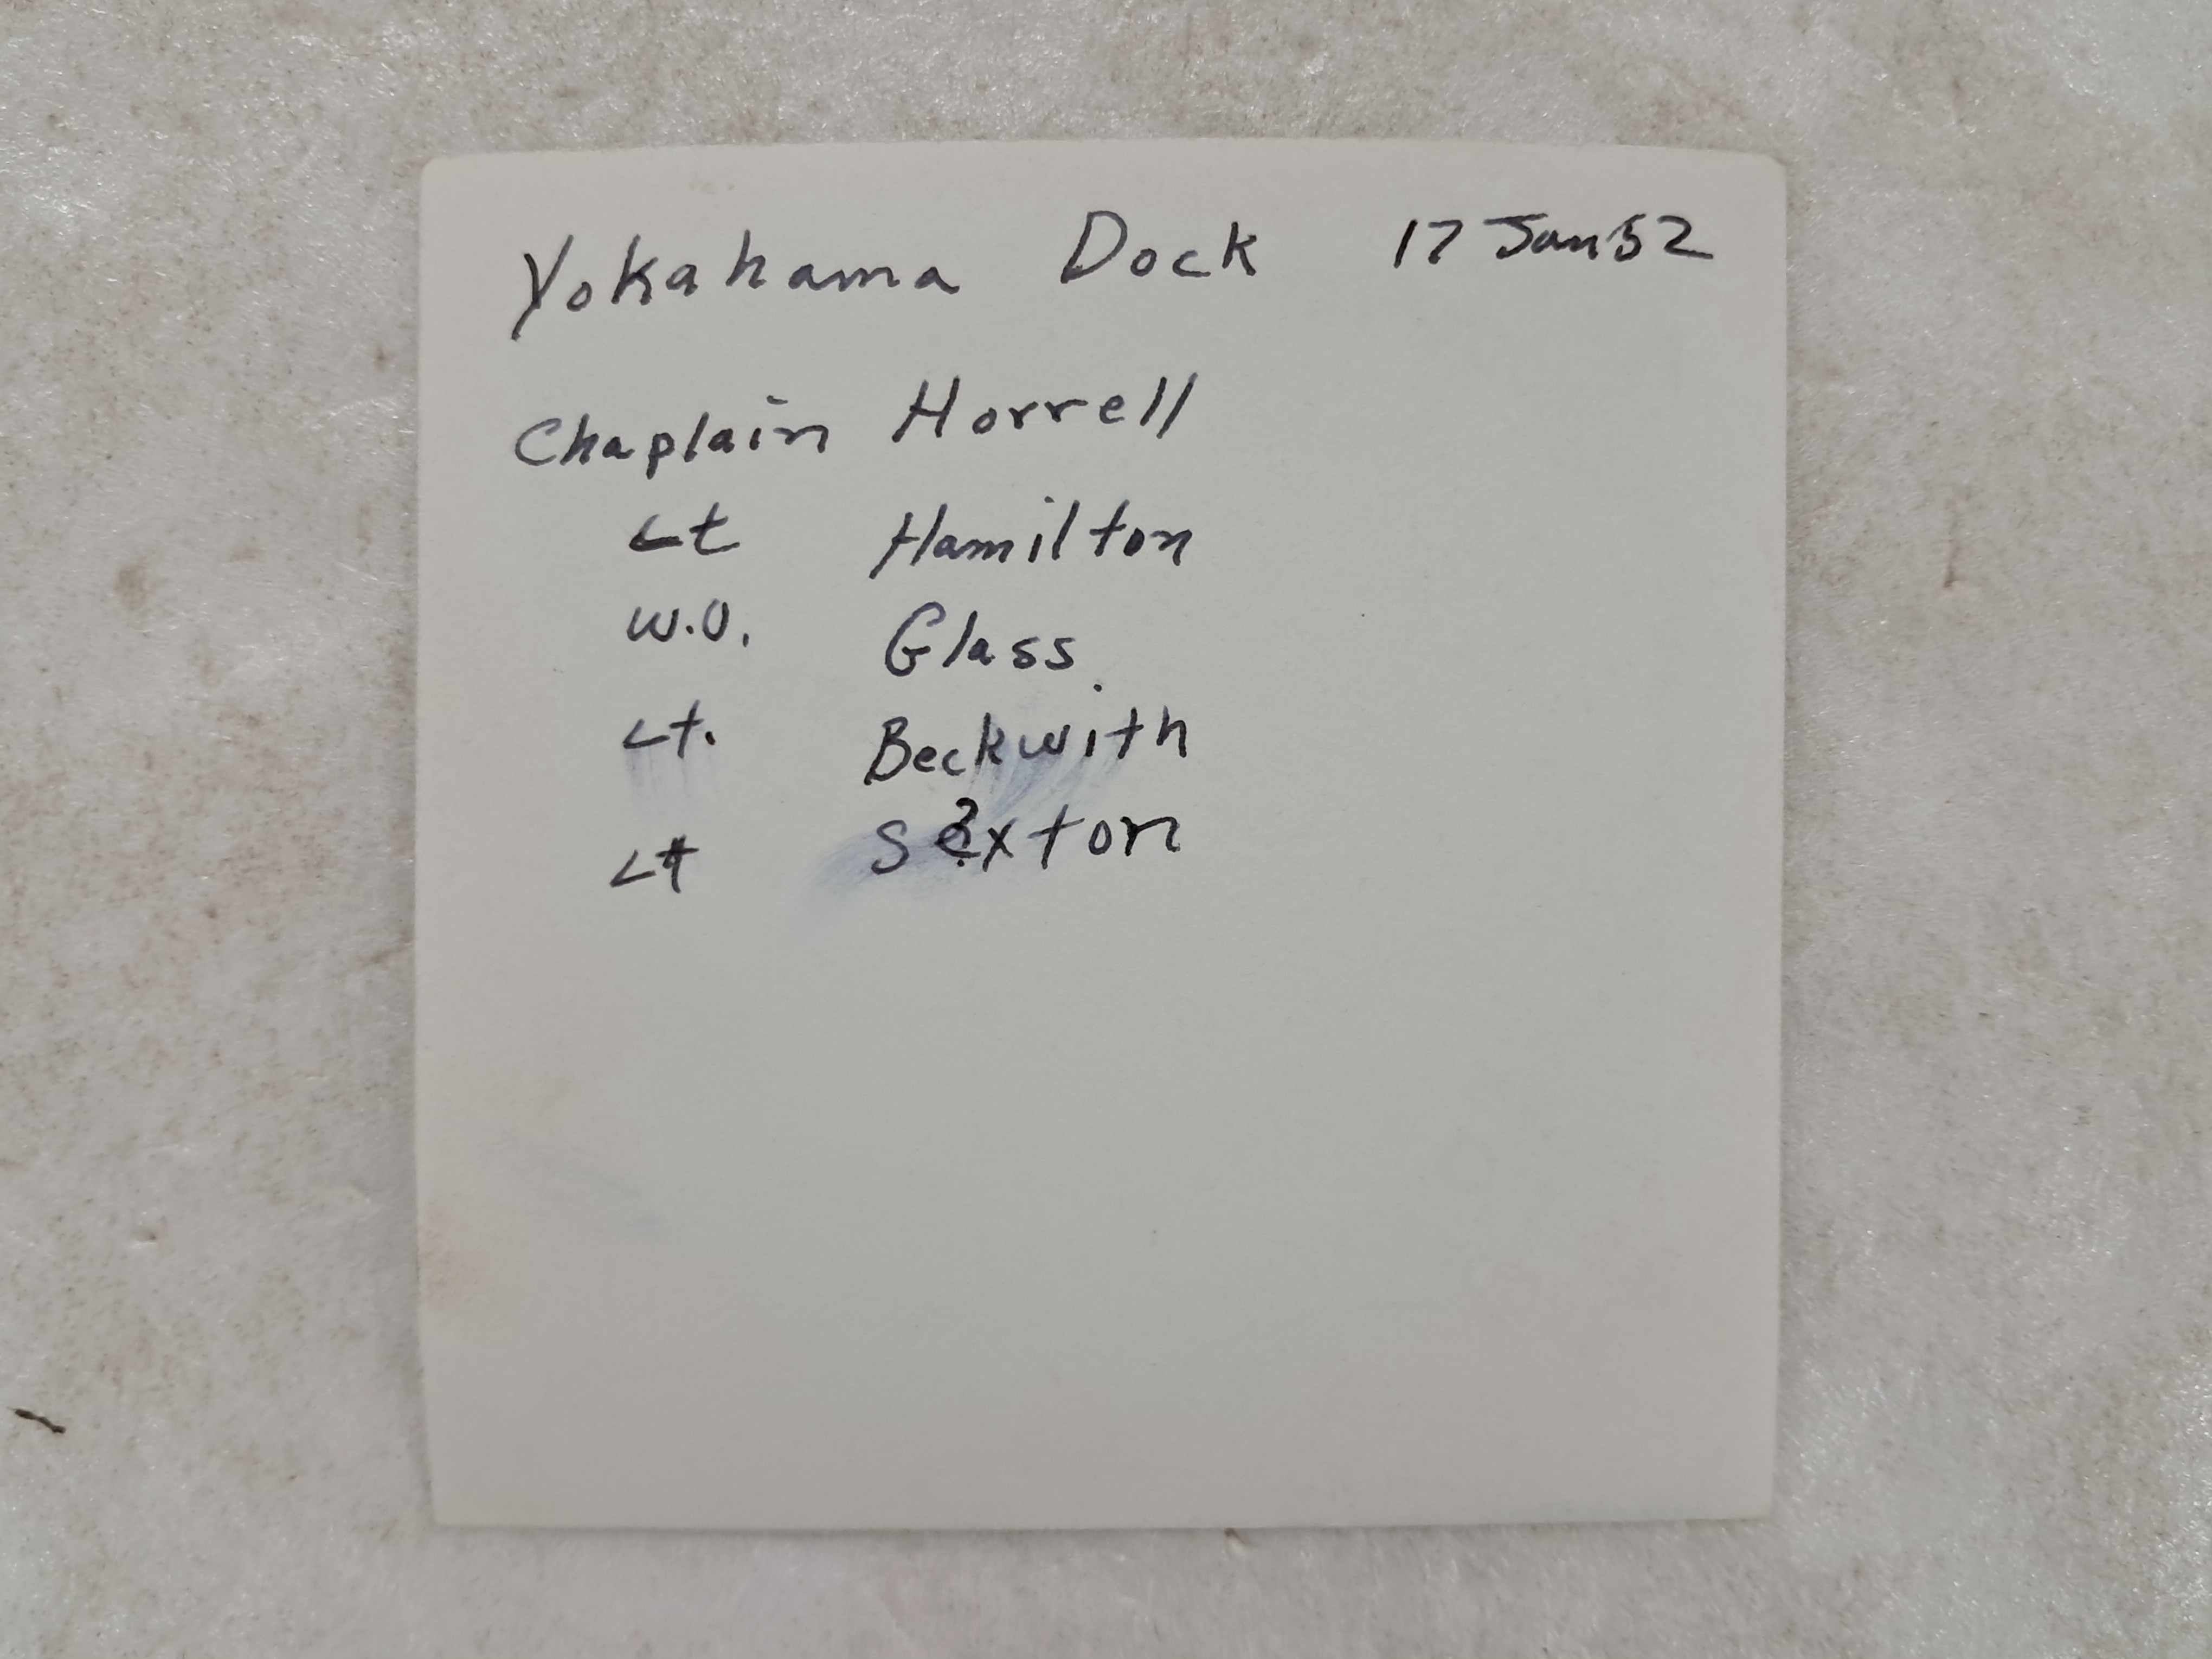 Yokahama Dock 17 Jan 52
Chaplain Horrell
Lt Hamilton
W.O. Glass
Lt. Beckwith
Lt Sexton